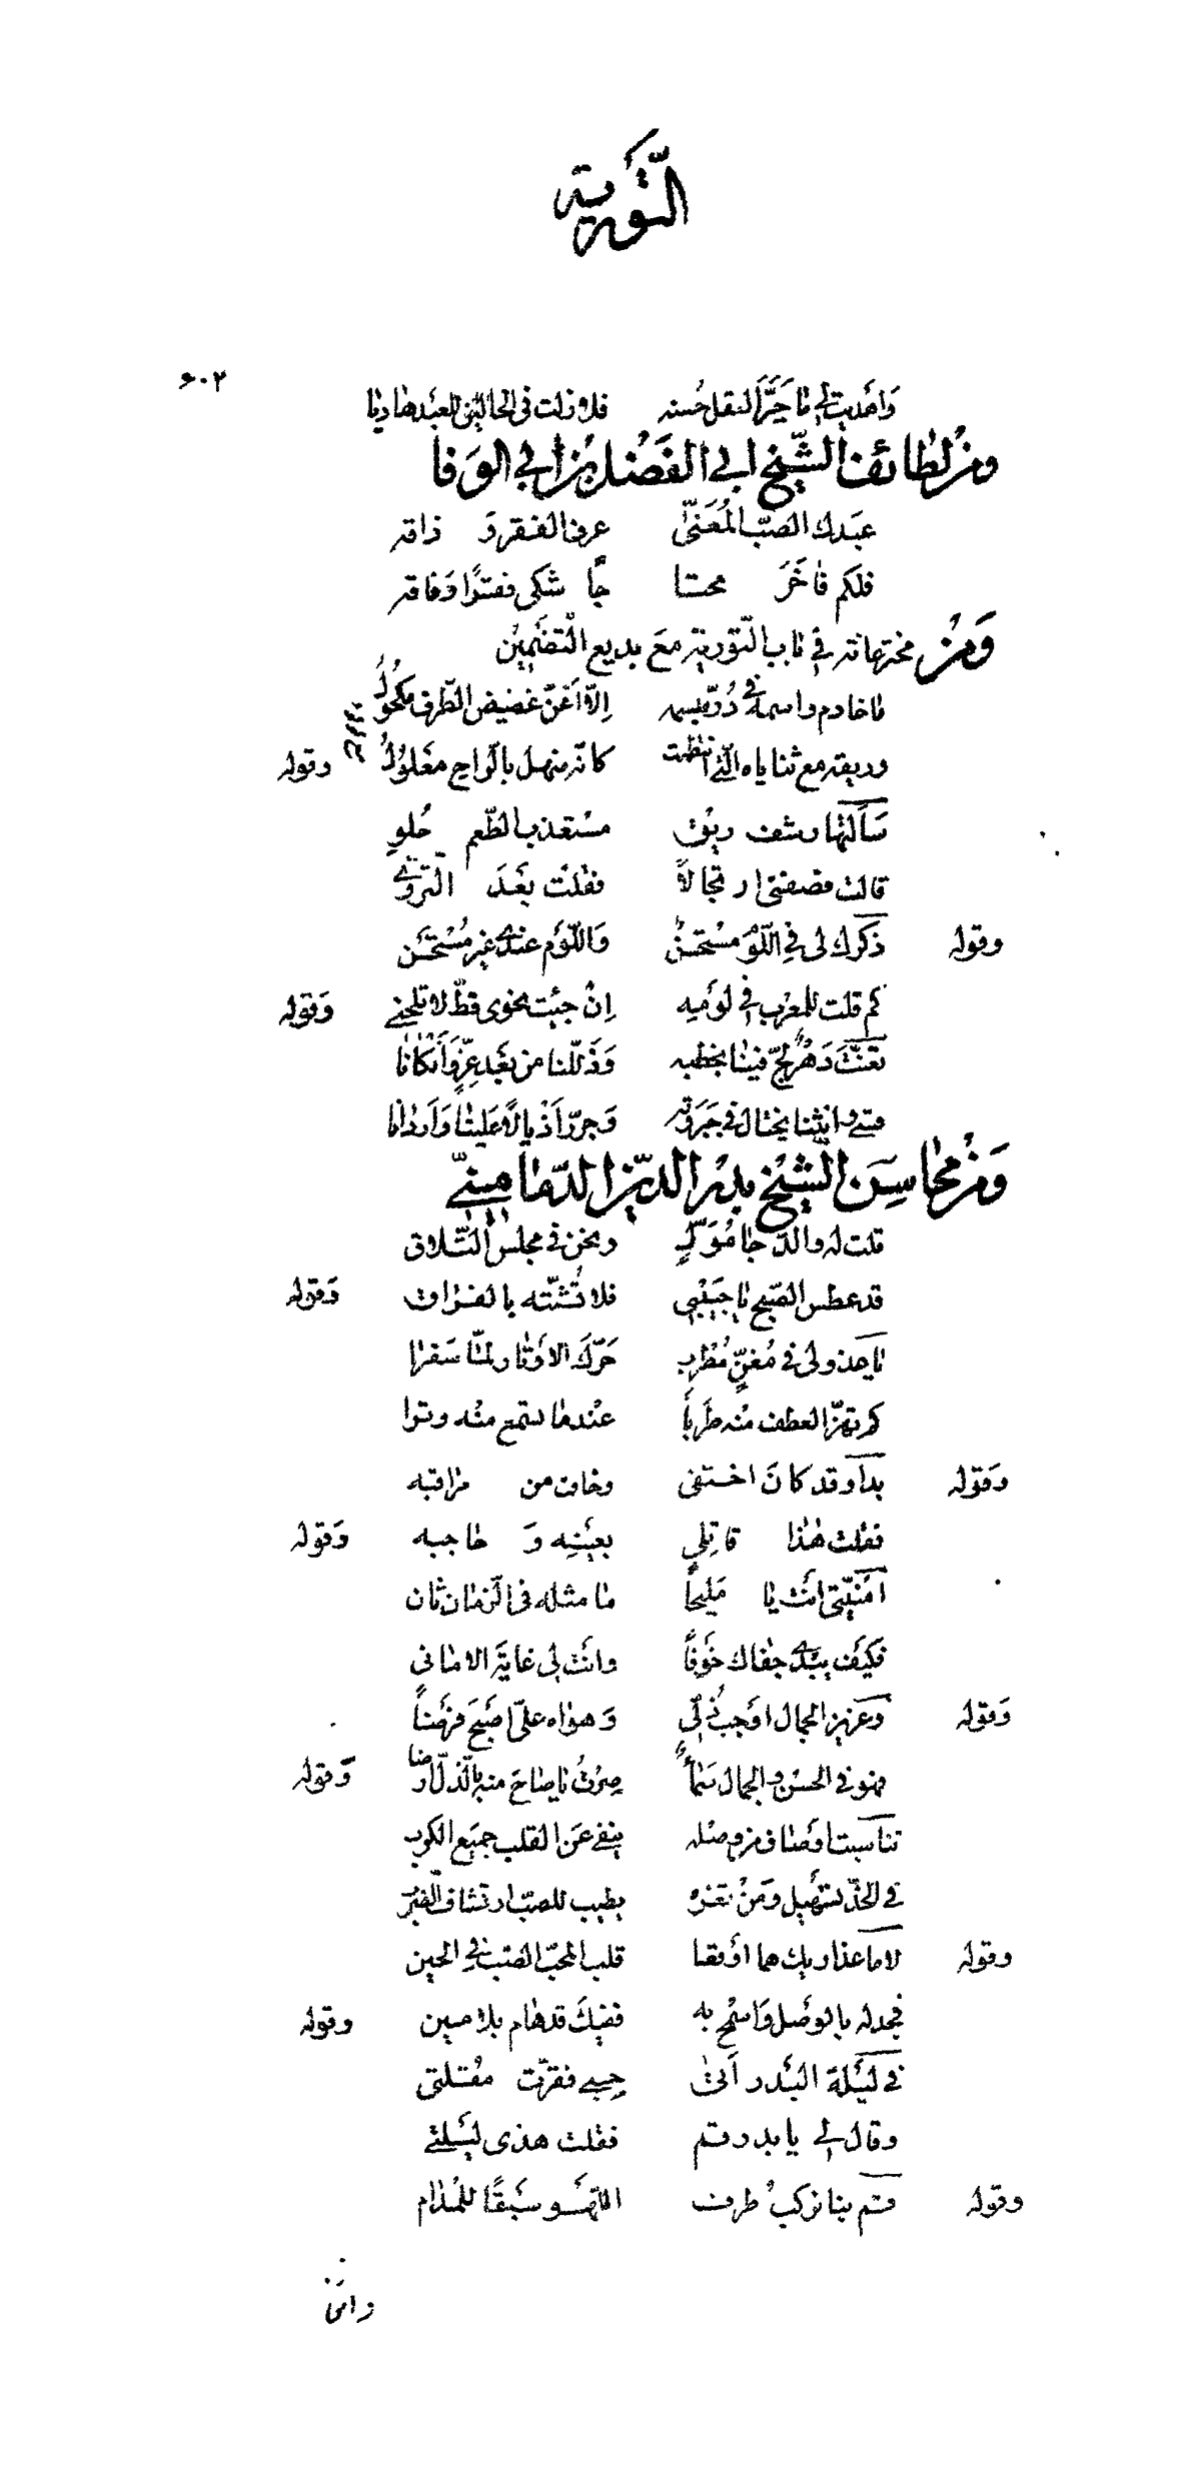 التورية
٦٠٢
واهديت لي ما حير العقل حسنه فلا زلت في الحالتين للعبد هاديا
ومن لطائف الشيخ ابي الفضل بن ابي الوفا
عبدك الصب المعنى عرف الفقر و ذاقه
فلكم فاخر محتا جا شكى فقرا وفاقه
ومن مخترعاته في باب التورية مع بديع التضمين
ما خادم واسمه في در مبسمه الا اغن غضيض الطرف مكحول
وريقه مع ثناياه التي انتظمت كانه منهل بالراح معلول وقوله
سألتها رشف ريق مستعذب الطعم حلو
قالت فصفني ارتجالا فقلت بعد التروي
وقوله ذكرك لي في اللوم مستحسن واللوم عندي غير مستحسن
كم قلت للمعرب في لوميه ان جئت نحوى قط لا تلحني وقوله
تعنت دهر لج فينا بخطبه وذللنا من بعد عز وأنكانا
متى وانثنا يختال في جبروته وجر اذيالا علينا واردانا
ومن محاسن الشيخ بدر الدين الدماميني
قلت له والدجا مول ونحن في مجلس التلاق
قد عطس الصبح يا حبيبي فلا تشمته بالفراق وقوله
يا عذولى في مغن مطرب حرك الاوتار لما سفرا
كم تهز العطف منه طربا عندما تسمع منه وترا
وقوله بدا وقد كان اختفى وخاف من مراقبه
فقلت هذا قاتلي بعينه و حاجبه وقوله
امنيتي انت يا مليحا ما مثله في الزمان ثان
فكيف يبدى جفاك خوفا وانت لي غاية الاماني
وقوله وعزيز الجمال اوجب ذلي وهواه علي اصبح فرضا
فهو في الحسن والجمال سماء صرت يا صاح منه بالذل ارضا وقوله
تناسبت اوصاف من وصله ينفي عن القلب جميع الكرب
في الخد تسهيل ومن ثغره يطيب للصب ارتشاف الضرب
وقوله لاما عذاريك هما اوقعا قلب المحب الصب في الحين
فجد له بالوصل واسمح به ففيك قد هام بلا مين وقوله
في ليلة البدر اتى حبي فقرت مقلتي
وقال لي يا بدر قم فقلت هذى ليلتي
وقوله قم بنا نركب طرف اللهو سبقا للمدام
واثن